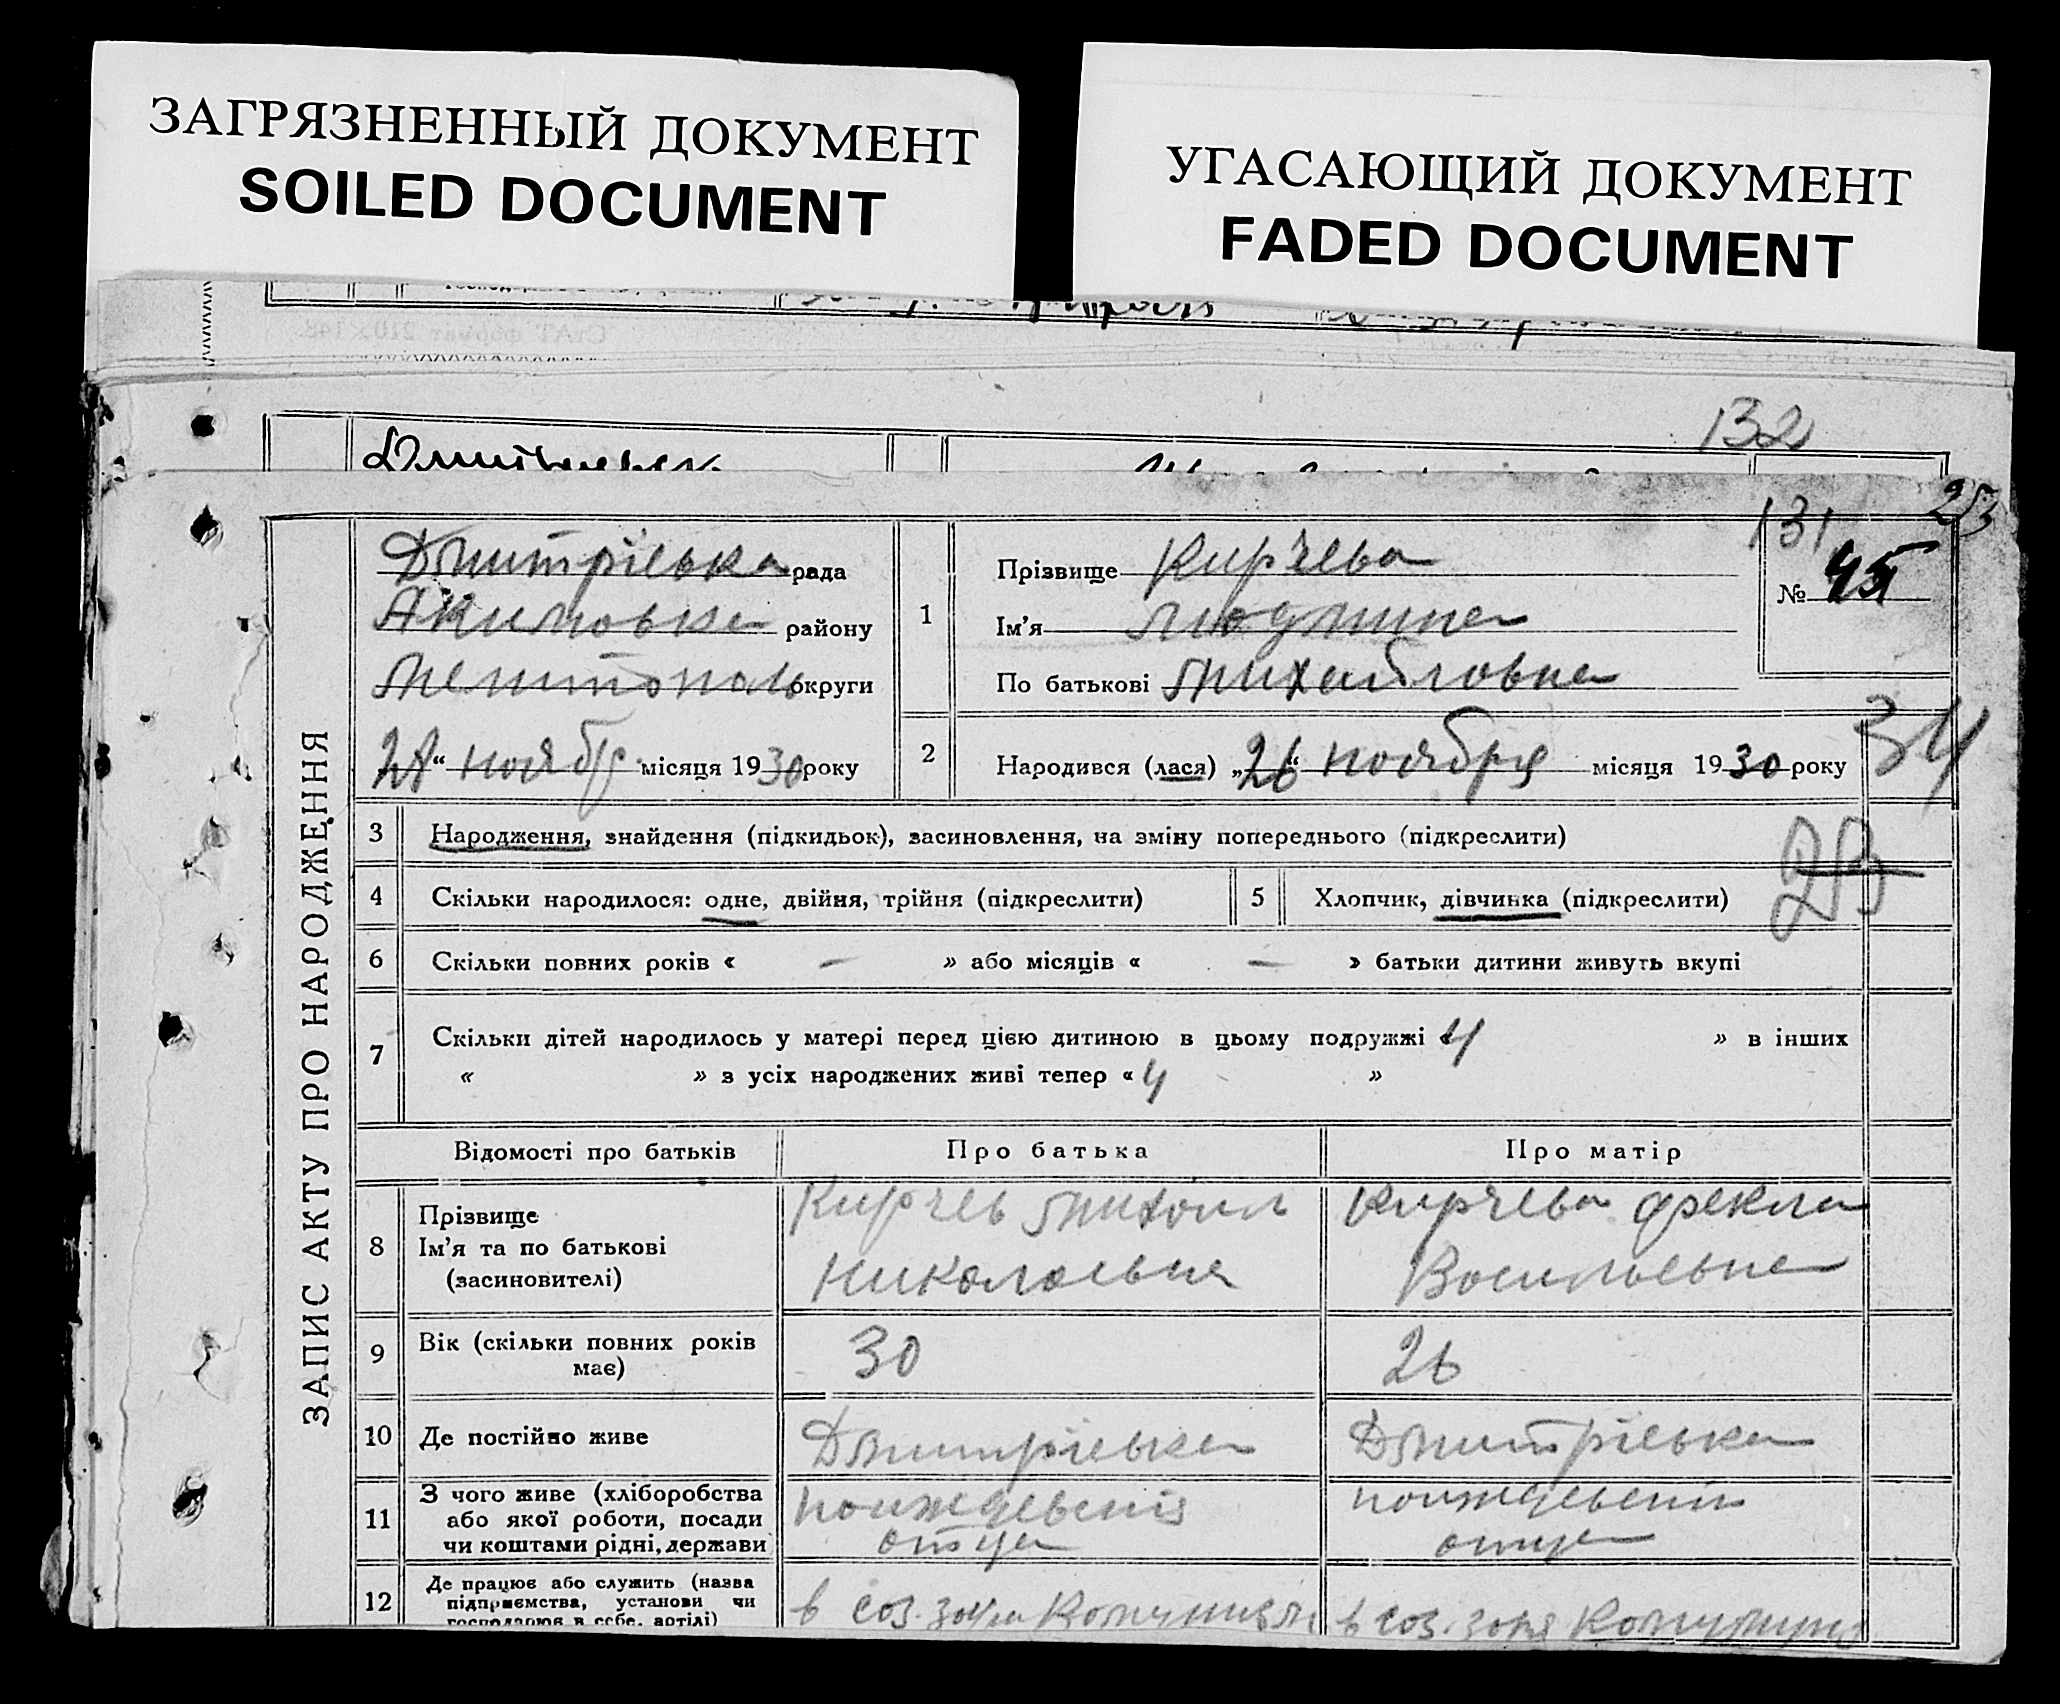 ЗАГРЯЗНЕННЫЙ ДОКУМЕНТ
SOILED DOCUMENT
УГАСАЮЩИЙ ДОКУМЕНТ
FADED DOCUMENT
СтАТ формат 210×148.
132
253
131
№ 45
ЗАПИС АКТУ ПРО НАРОДЖЕННЯ
Дмитрієвка рада
Акимовка району
Мелитополь округи
28 “ ноябр. місяця 1930 року
1
Прізвище Кирчева
Ім’я Людмила
По батькові Михайловна
34
2
Народився (лася) „26“ ноября місяця 1930 року
3 Народження, знайдення (підкидьок), засиновлення, на зміну попереднього (підкреслити)
23
4 Скільки народилося: одне, двійня, трійня (підкреслити)
5 Хлопчик, дівчинка (підкреслити)
6 Скільки повних років « — » або місяців « — » батьки дитини живуть вкупі
7 Скільки дітей народилось у матері перед цією дитиною в цьому подружжі « 4 » в інших
« » з усіх народжених живі тепер « 4 »
Відомості про батьків
Про батька
Про матір
8 Прізвище
Ім’я та по батькові
(засиновителі)
Кирчев Михаил
Николаевич
Кирчева Фекла
Васильевна
9 Вік (скільки повних років
має)
30
26
10 Де постійно живе
Дмитрієвка
Дмитрієвка
11 З чого живе (хліборобства
або якої роботи, посади
чи коштами рідні, держави
отца
отца
12 Де працює або служить (назва
підприємства, установи чи
господарює в себе, артілі)
в соз. заря
в соз. заря